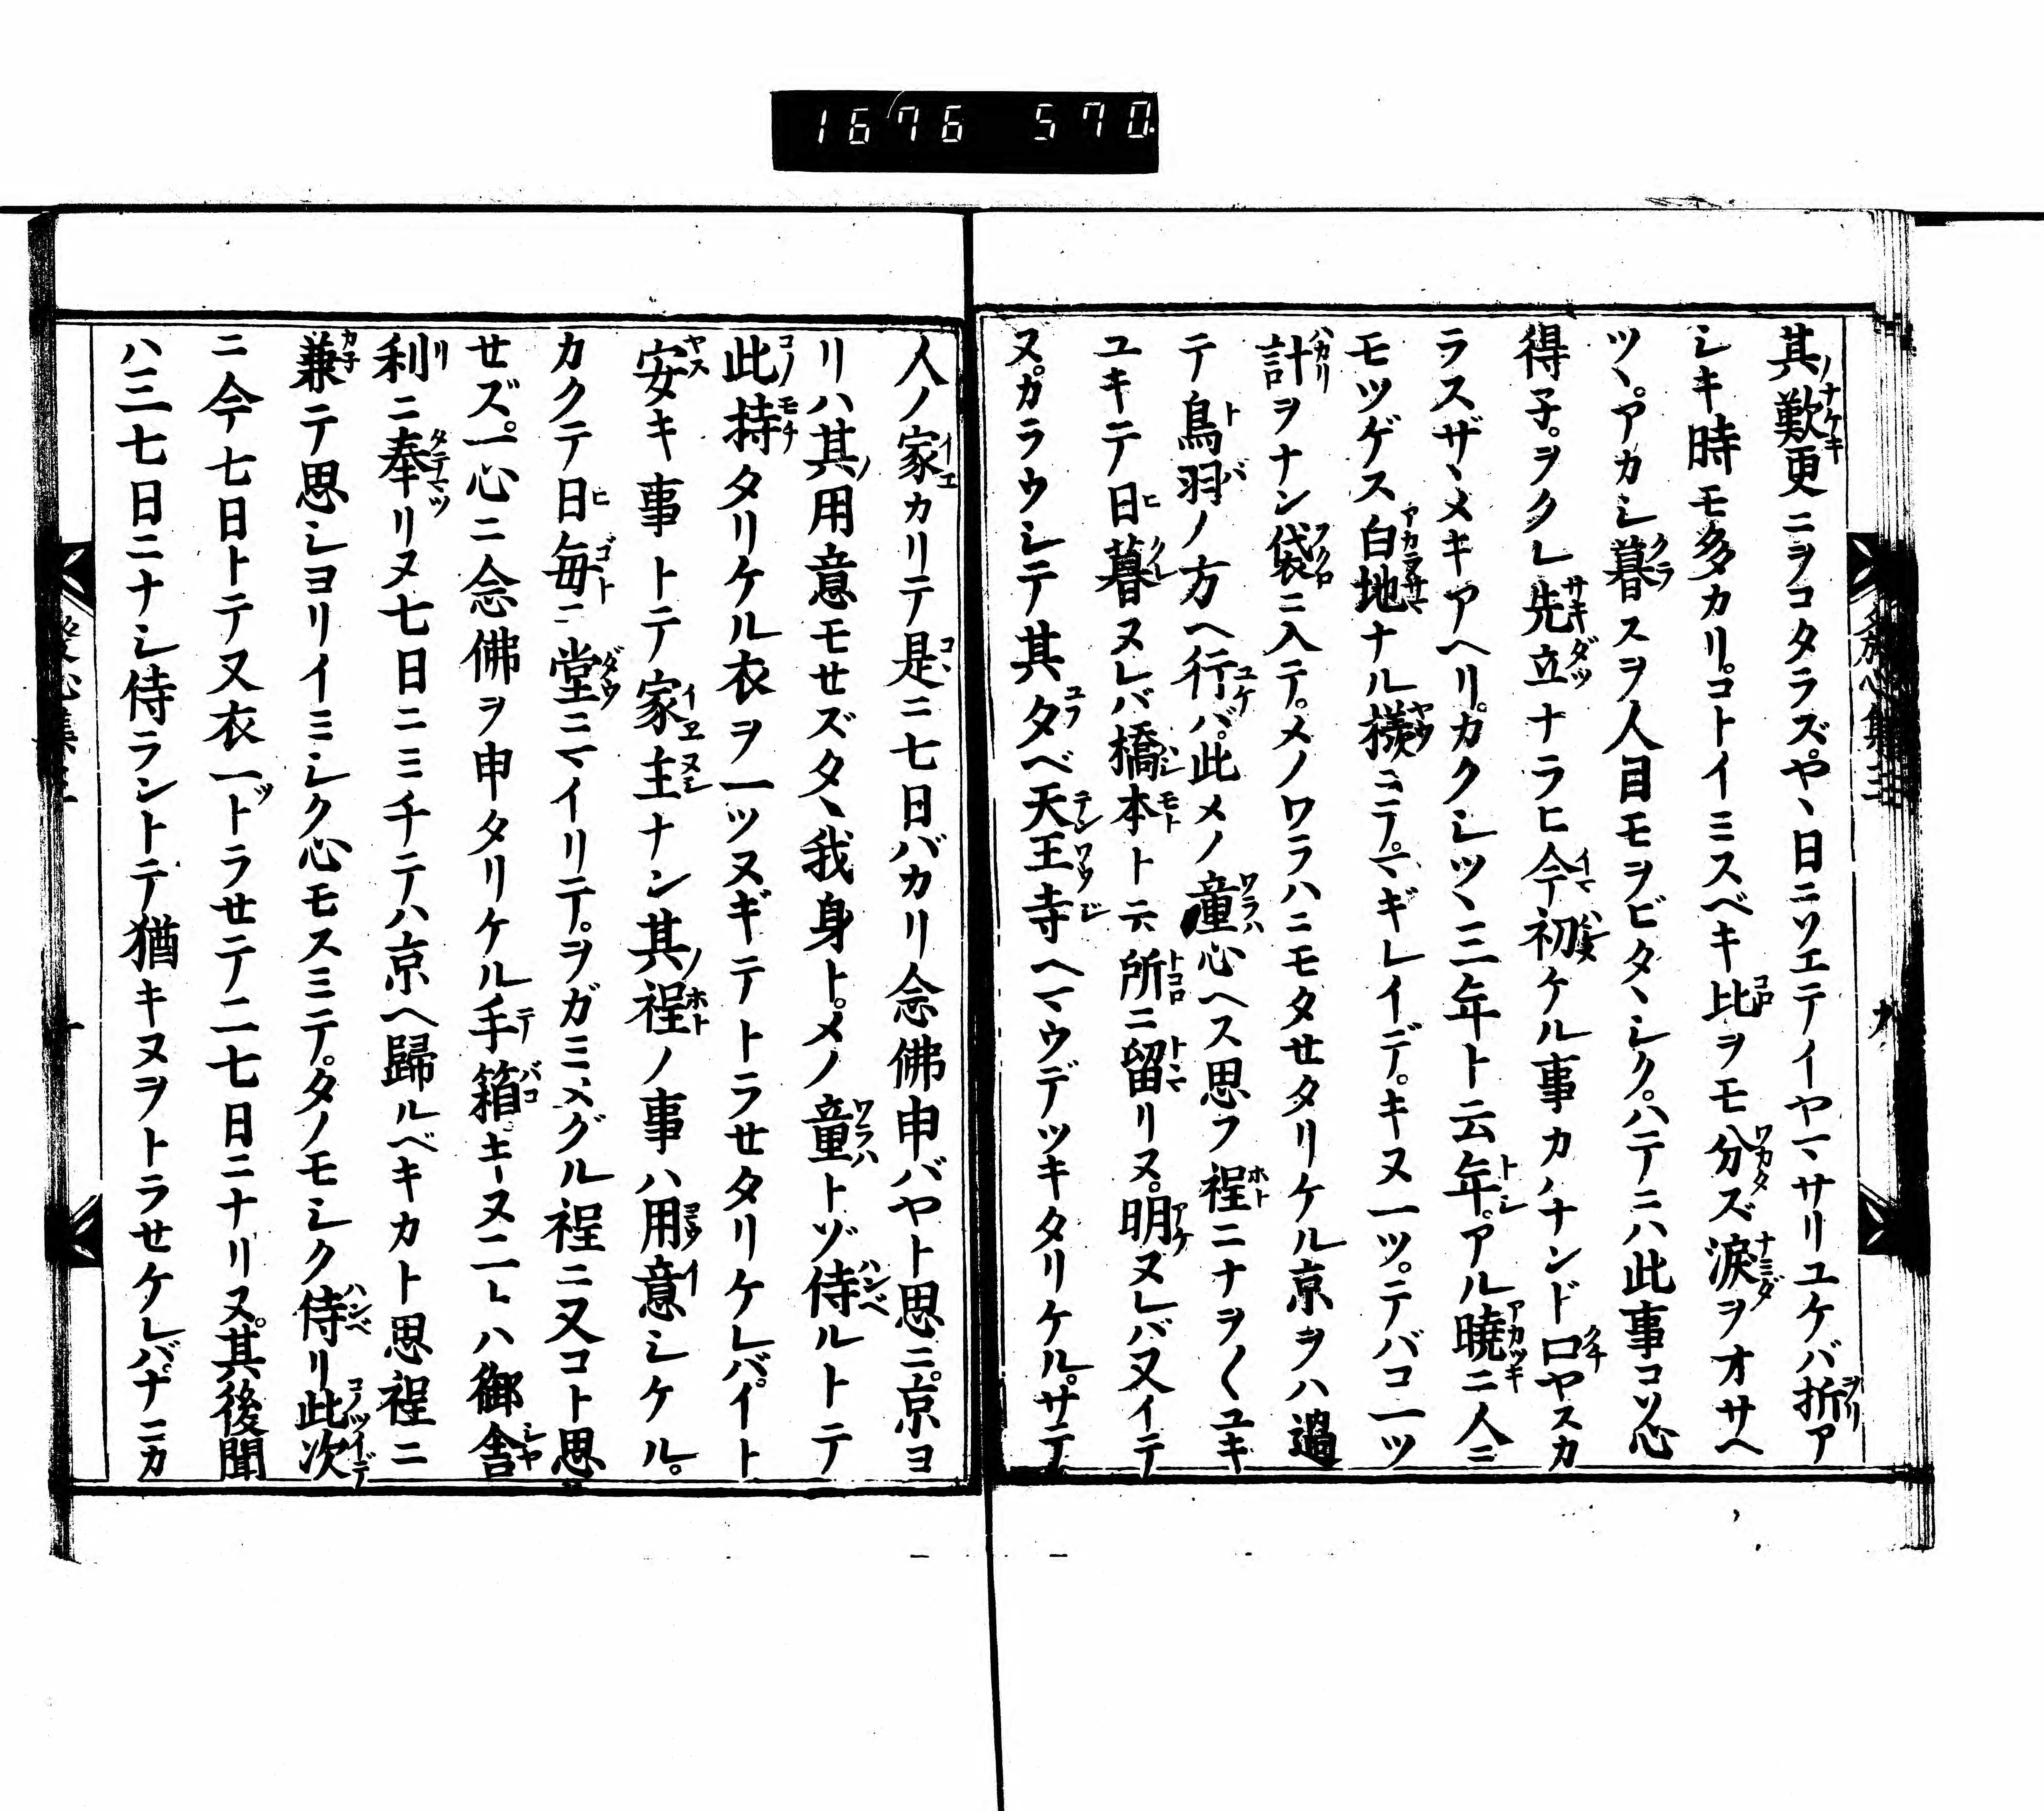 1676 570.
其ノ歎更ニヲコタラズ。ヤヽ日ニソエテイヤマサリユケバ折ア
シキ時モ多カリ。コトイミスベキ比ヲモ分ズ涙ヲオサヘ
ツヽ。アカシ暮スヲ人目モヲビタヽシク。ハテニハ此事コソ心
得子。ヲクレ先立ナラヒ今初ケル事カハナンド口ヤスカ
ラスザヽメキアヘリ。カクシツヽ三年ト云年。アル曉ニ人ニ
モツゲス白地ナル様ニテ。マギレイデ。キヌ一ツ。テバコ一ツ
計ヲナン袋ニ入テ。メノワラハニモタセタリケル京ヲハ過
テ鳥羽ノ方ヘ行バ。此メノ童心ヘス思フ程ニナヲ〱ユキ
ユキテ日暮ヌレバ橋本ト云所ニ留リヌ。明ヌレバ又イテ
ヌ。カラウシテ其夕ベ天王寺ヘマウデツキタリケル。サテ
人ノ家カリテ是ニ七日バカリ念佛申バヤト思ニ。京ヨ
リハ其ノ用意モセズタヽ我身ト。メノ童トゾ侍ルトテ
此ノ持タリケル衣ヲ一ツヌギテトラセタリケレバ。イト
安キ事トテ家主ナン其ノ程ノ事ハ用意シケル。
カクテ日毎ニ堂ニマイリテ。ヲガミメグル程ニ又コト思
セズ。一心ニ念佛ヲ申タリケル手箱キヌ二ハ御舎
利ニ奉リヌ七日ニミチテハ京ヘ歸ルベキカト思程ニ
兼テ思シヨリイミシク心モスミテ。タノモシク侍リ此次
ニ今七日トテ又衣一トラセテ二七日ニナリヌ。其後聞
ハ三七日ニナシ侍ラントテ猶キヌヲトラセケレバ。ナニカ